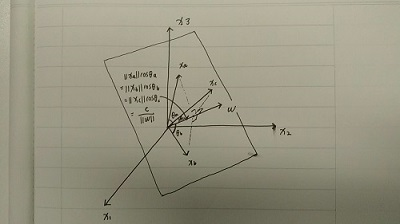 x3
||xa||cosθa
= ||xb||cosθb
= ||xc||cosθc
= c
||w||
xa
xc
w
θa
θb
x2
xb
x1